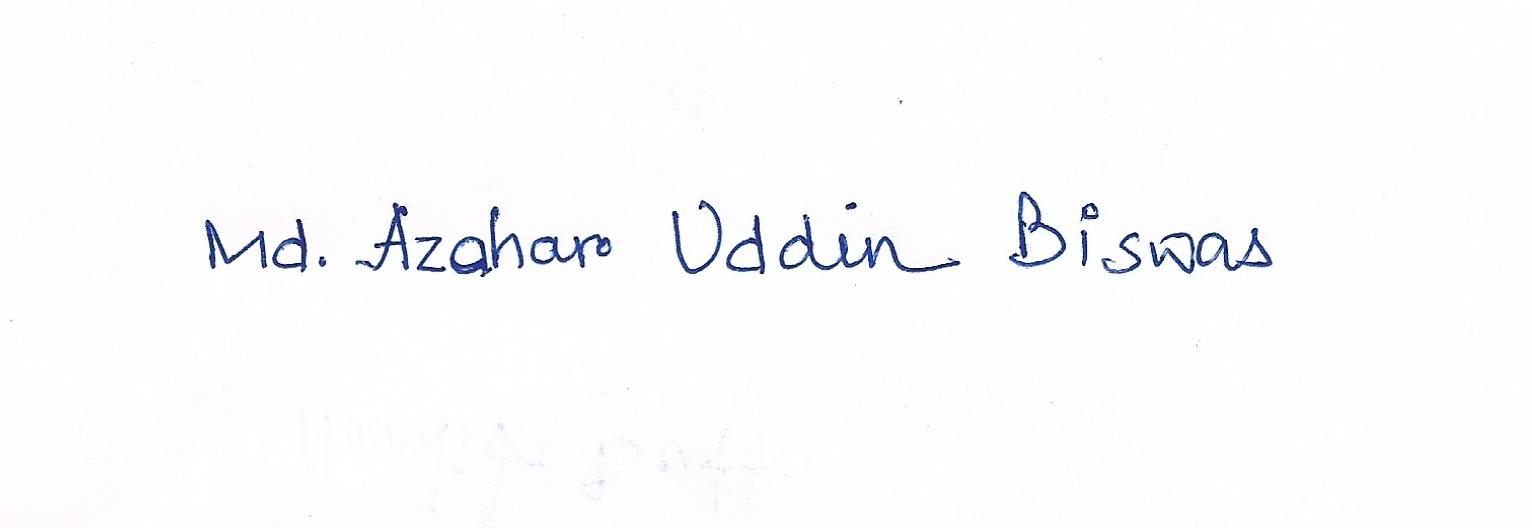 Md. Azahar Uddin Biswas